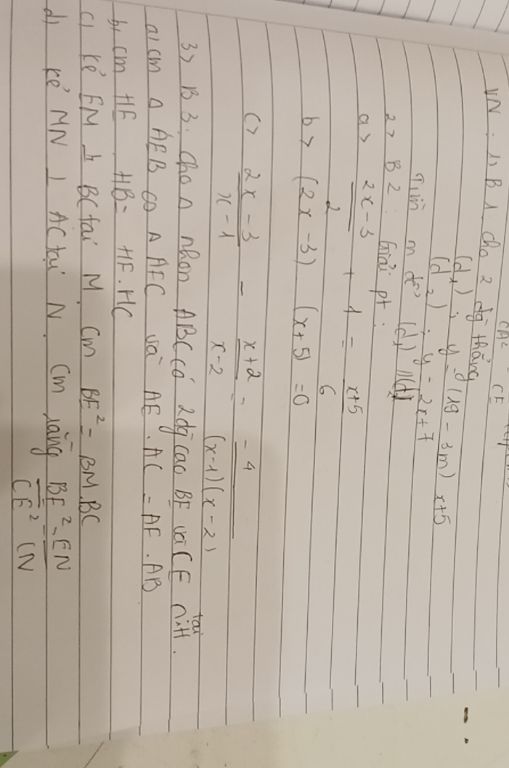 CA² CE
VN: 1> B1. cho 2 đg thẳng
(d1): y = (19 - 3m) x+5
(d2): y = 2x+7
Tìm m để (d1) // (d2)
2> B2: Giải pt:
a> 2x-3/2 + 1 = x+5/6
b> (2x-3) (x+5) =0
c> 2x-3/x-1 - x+2/x-2 = -4/(x-1)(x-2)
3> B3: Cho Δ nhọn ABC có 2 đg cao BF và CE ∩ tại H.
a, cm Δ AEB ᔕ Δ AFC và AE. AC = AF. AB
b, cm HE. HB= HF.HC
c, kẻ EM ⊥ BC tại M. Cm BE²= BM.BC
d, kẻ MN ⊥ AC tại N. Cm rằng BE²/CE² = EN/CN